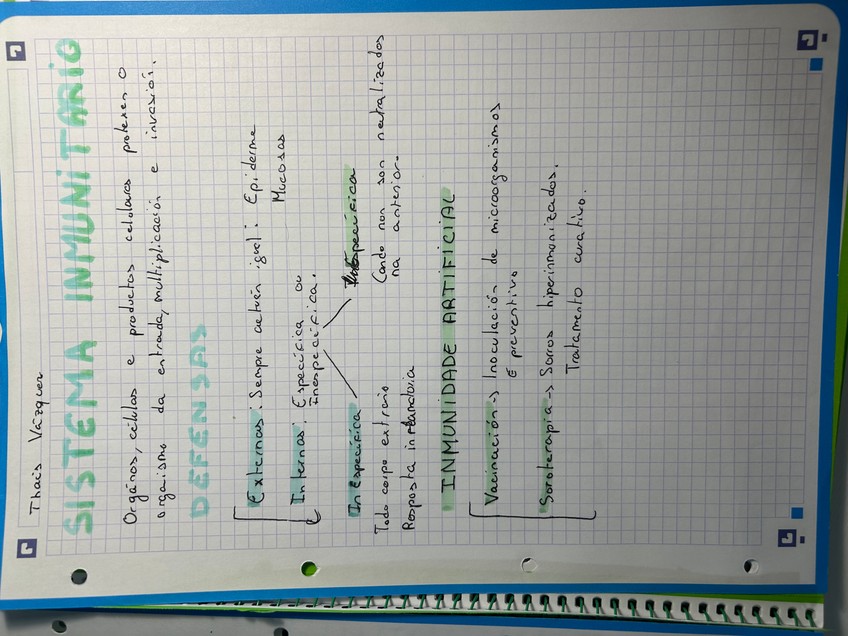 Thais Vázquez
SISTEMA INMUNITARIO
Orgános, células e productos celulares protexen o
organismo da entrada, multiplicación e invasión.
DEFENSAS
Externas: Sempre actúan igual: Epiderme
Mucosas
Internas: Específica ou
Inespecífica.
Inespecífica
Específica
Todo corpo extraño
Resposta inflamatoria
Cando non son neutralizados
na anterior.
INMUNIDADE ARTIFICIAL
Vacinación → Inoculación de microorganismos
É preventivo
Soroterapia → Soros hiperinmonizados.
Tratamento curativo.